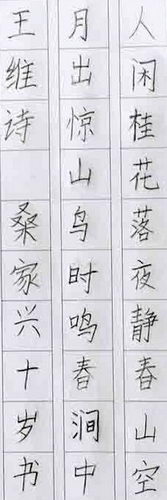 人闲桂花落夜静春山空
月出惊山鸟时鸣春涧中
王维诗 桑家兴十岁书